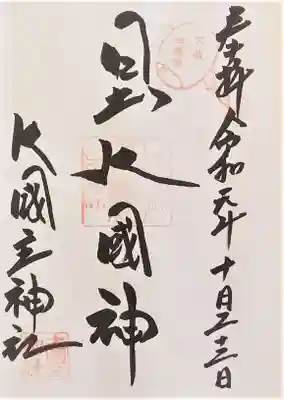 奉拝 令和元年 十月二十三日
日出大國神
大國主神社